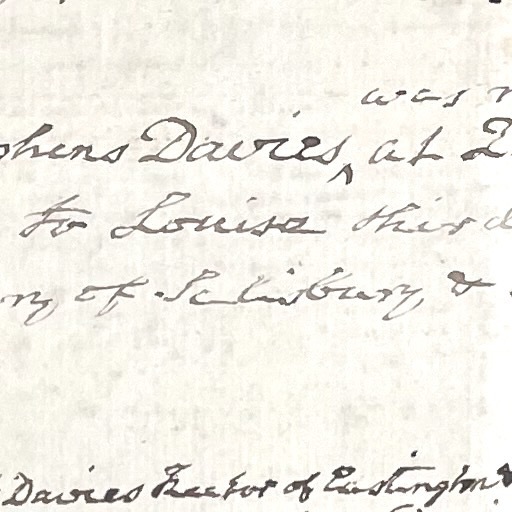 was
phens Davies ^ at
to Louisa third
ry of Salisbury &
Davies Rector of Eastington &